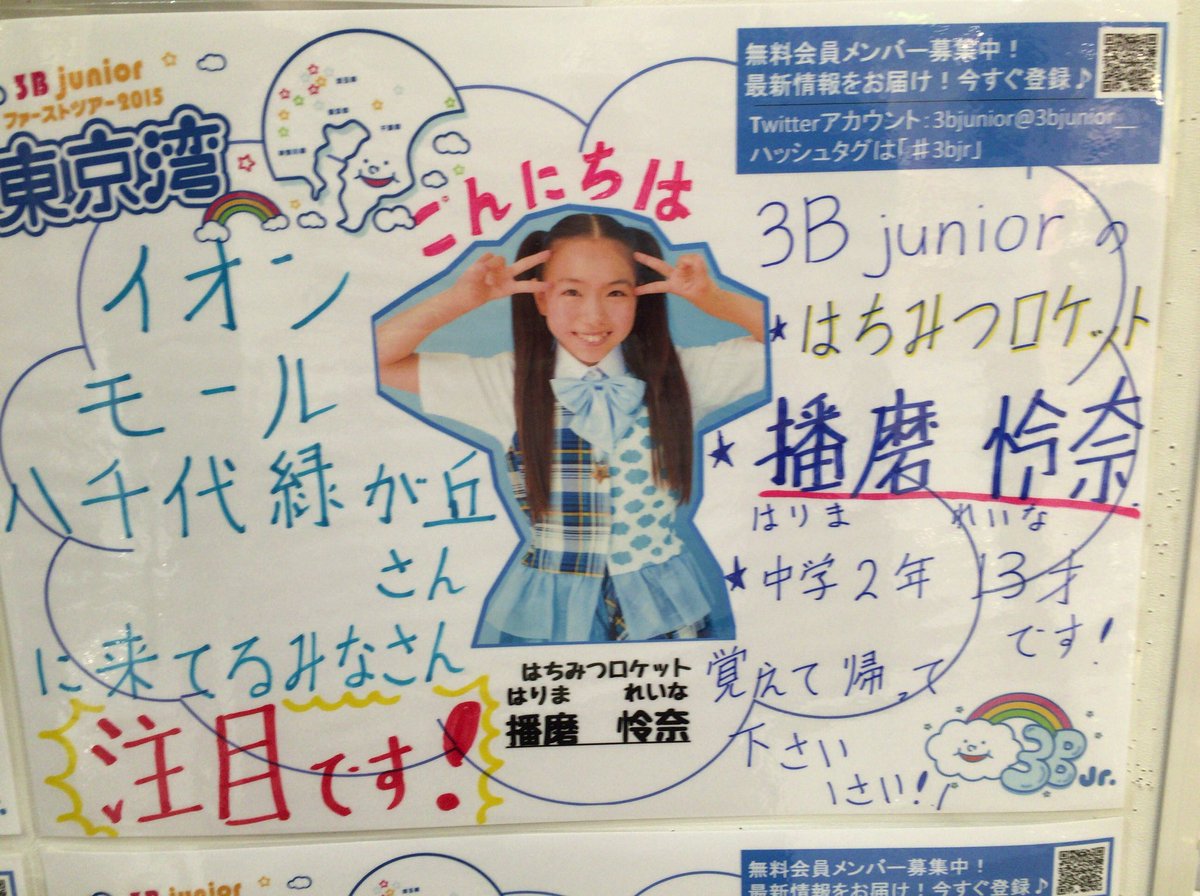 3B junior
ファーストツアー2015
東京湾
無料会員メンバー募集中！
最新情報をお届け！今すぐ登録♪
Twitterアカウント：3bjunior@3bjunior__
ハッシュタグは「＃3bjr」
こんにちは
イオン
モール
八千代緑が丘
さん
に来てるみなさん
注目です！
3B juniorの
★はちみつロケット
★播磨 怜奈
はりま れいな
★中学2年 13才
です！
覚えて帰って
下さい
さい！
はちみつロケット
はりま れいな
播磨 怜奈
3B Jr.
3B junior
無料会員メンバー募集中！
最新情報をお届け！今すぐ登録♪